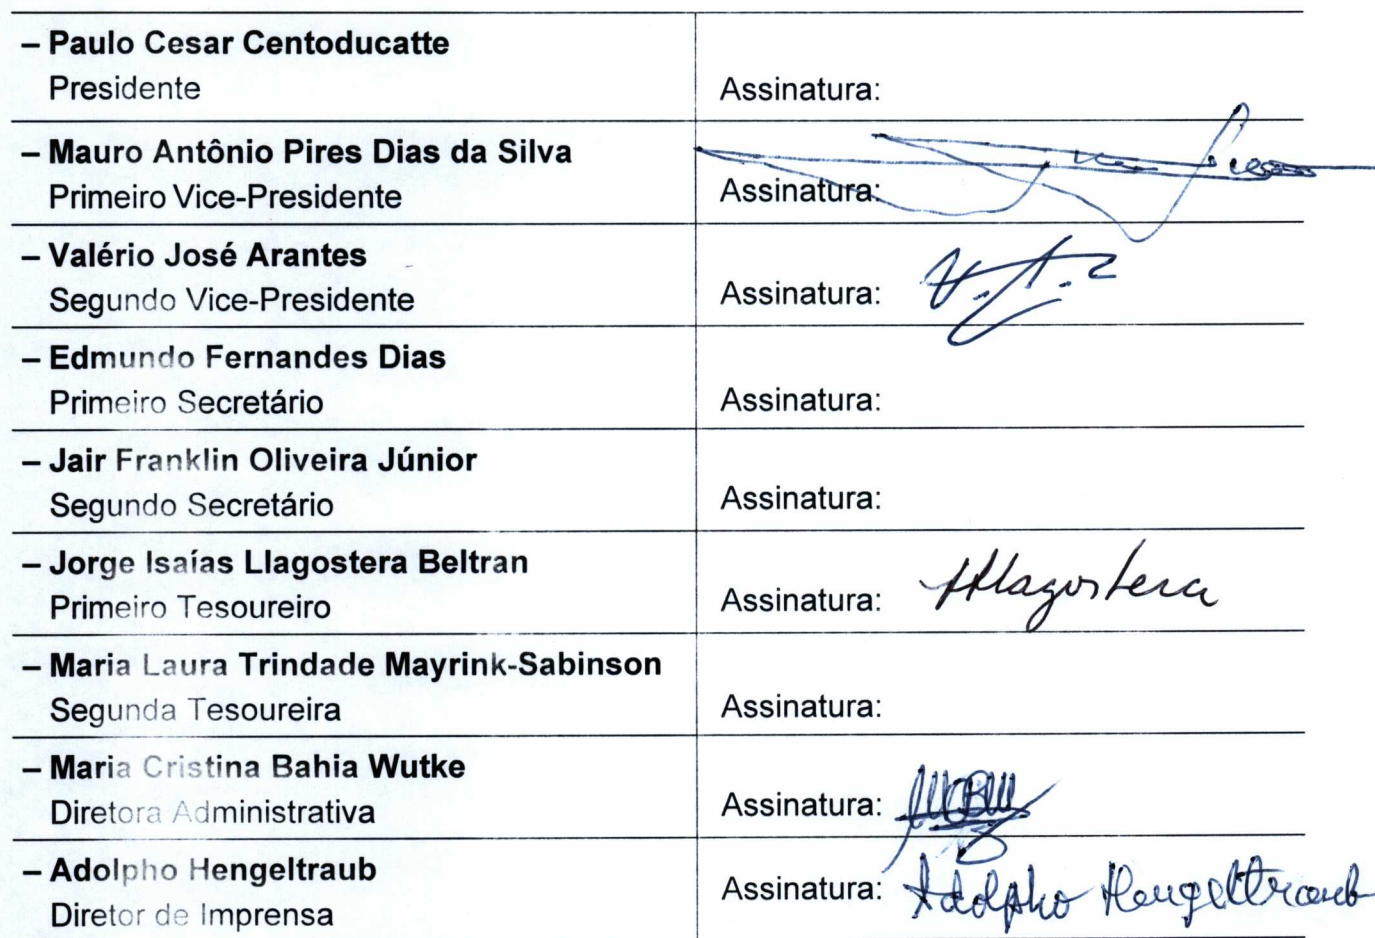 – Paulo Cesar Centoducatte
Presidente
Assinatura:
– Mauro Antônio Pires Dias da Silva
Primeiro Vice-Presidente
Assinatura:
– Valério José Arantes
Segundo Vice-Presidente
Assinatura:
– Edmundo Fernandes Dias
Primeiro Secretário
Assinatura:
– Jair Franklin Oliveira Júnior
Segundo Secretário
Assinatura:
– Jorge Isaías Llagostera Beltran
Primeiro Tesoureiro
Assinatura: Llagostera
– Maria Laura Trindade Mayrink-Sabinson
Segunda Tesoureira
Assinatura:
– Maria Cristina Bahia Wutke
Diretora Administrativa
Assinatura: MCBW
– Adolpho Hengeltraub
Diretor de Imprensa
Assinatura: Adolpho Hengeltraub